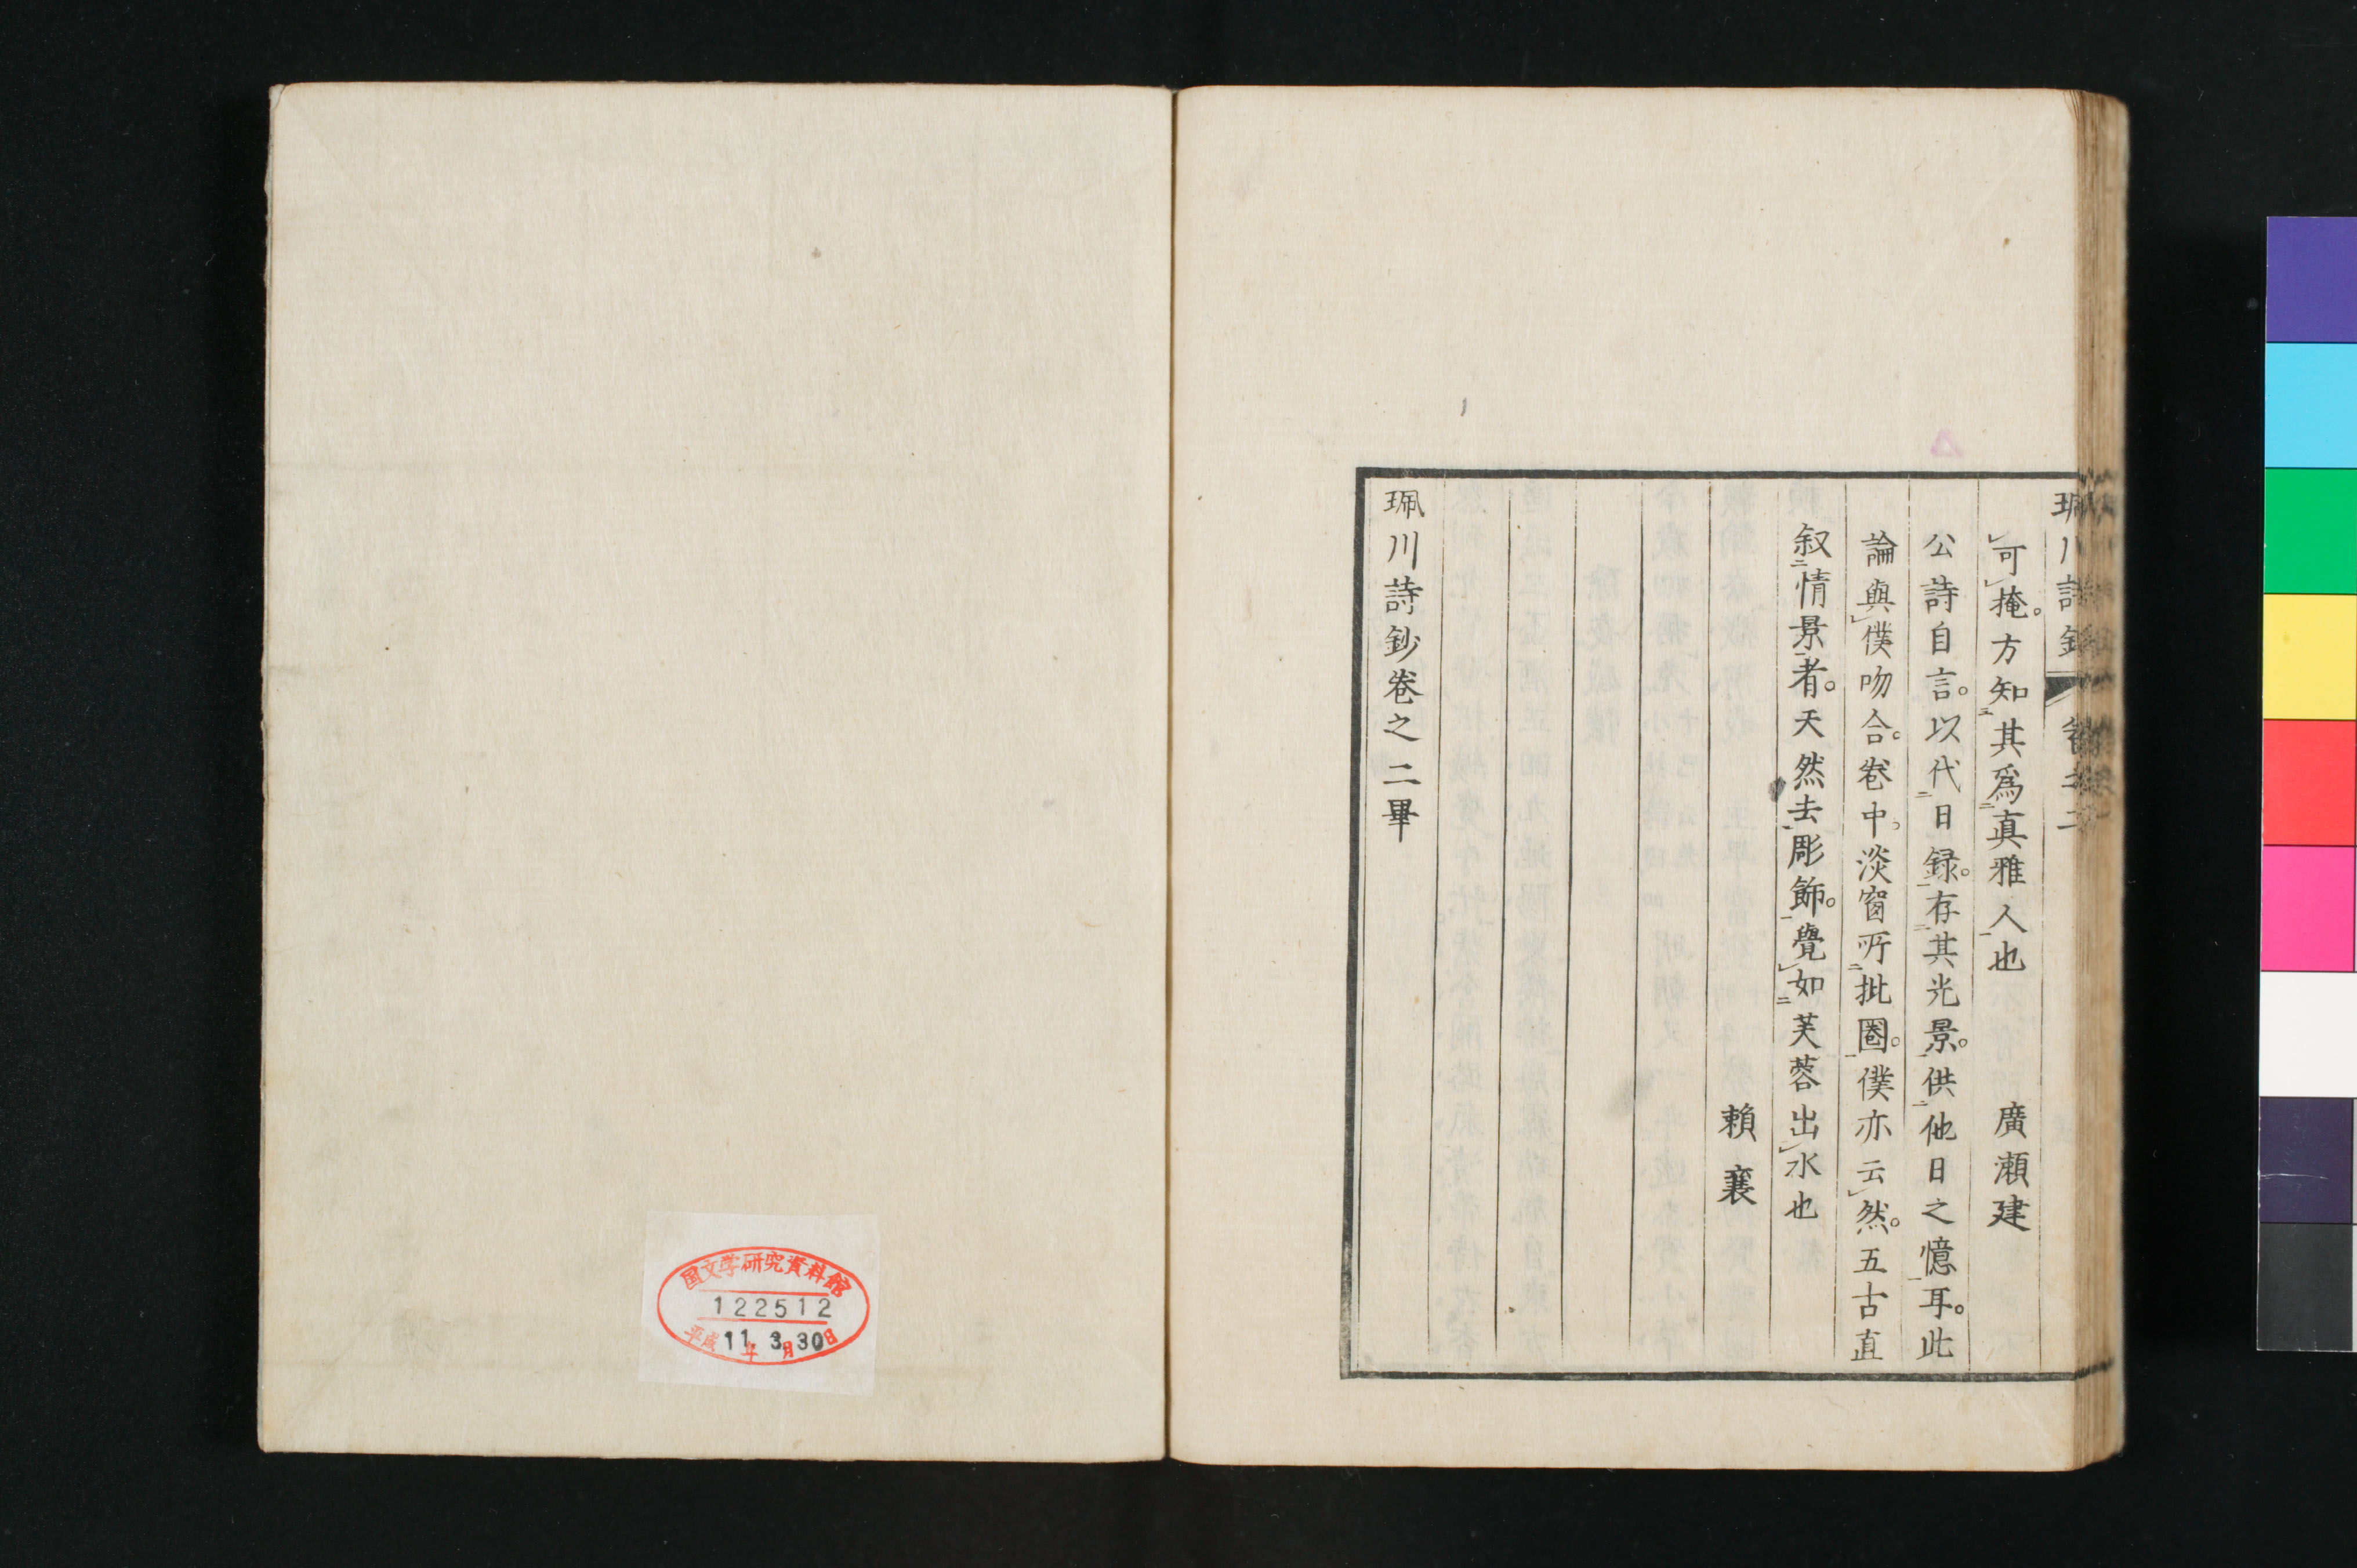 珮川詩鈔
可掩。方知其爲真雅人也　廣瀬建
公詩自言。以代日録。存其光景。供他日之憶耳。此
論與僕吻合。卷中。淡窗所批圏。僕亦云然。五古直
叙情景者。天然去彫飾。覺如芙蓉出水也
賴襄
珮川詩鈔卷之二畢
国文学研究資料館
122512
平成11年3月30日